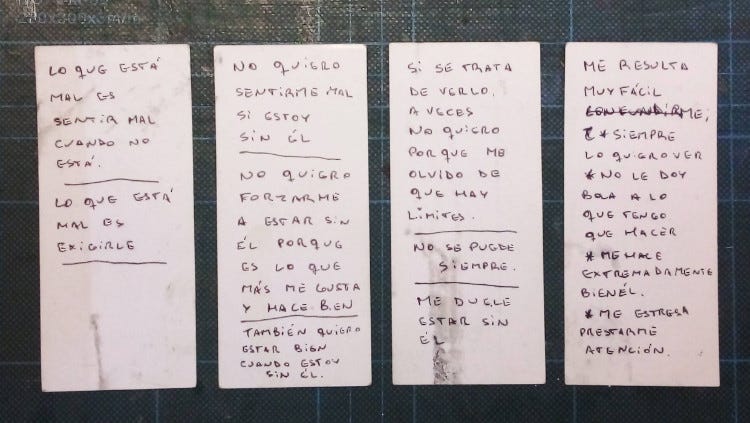 200x300x3m/m
LO QUE ESTÁ
MAL ES
SENTIR MAL
CUANDO NO
ESTÁ.
LO QUE ESTÁ
MAL ES
EXIGIRLE
NO QUIERO
SENTIRME MAL
SI ESTOY
SIN ÉL
NO QUIERO
FORZARME
A ESTAR SIN
ÉL PORQUE
ES LO QUE
MÁS ME GUSTA
Y HACE BIEN
TAMBIÉN QUIERO
ESTAR BIEN
CUANDO ESTOY
SIN ÉL.
SI SE TRATA
DE VERLO,
A VECES
NO QUIERO
PORQUE ME
OLVIDO DE
QUE HAY
LÍMITES.
NO SE PUEDE
SIEMPRE.
ME DUELE
ESTAR SIN
ÉL
ME RESULTA
MUY FÁCIL
CONFUNDIRME;
* SIEMPRE
LO QUIERO VER
* NO LE DOY
BOLA A LO
QUE TENGO
QUE HACER
* ME HACE
EXTREMADAMENTE
BIEN ÉL.
* ME ESTRESA
PRESTARME
ATENCIÓN.